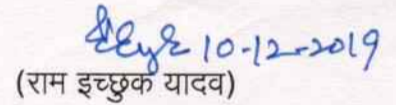 10-12-2019
(राम इच्छुक यादव)